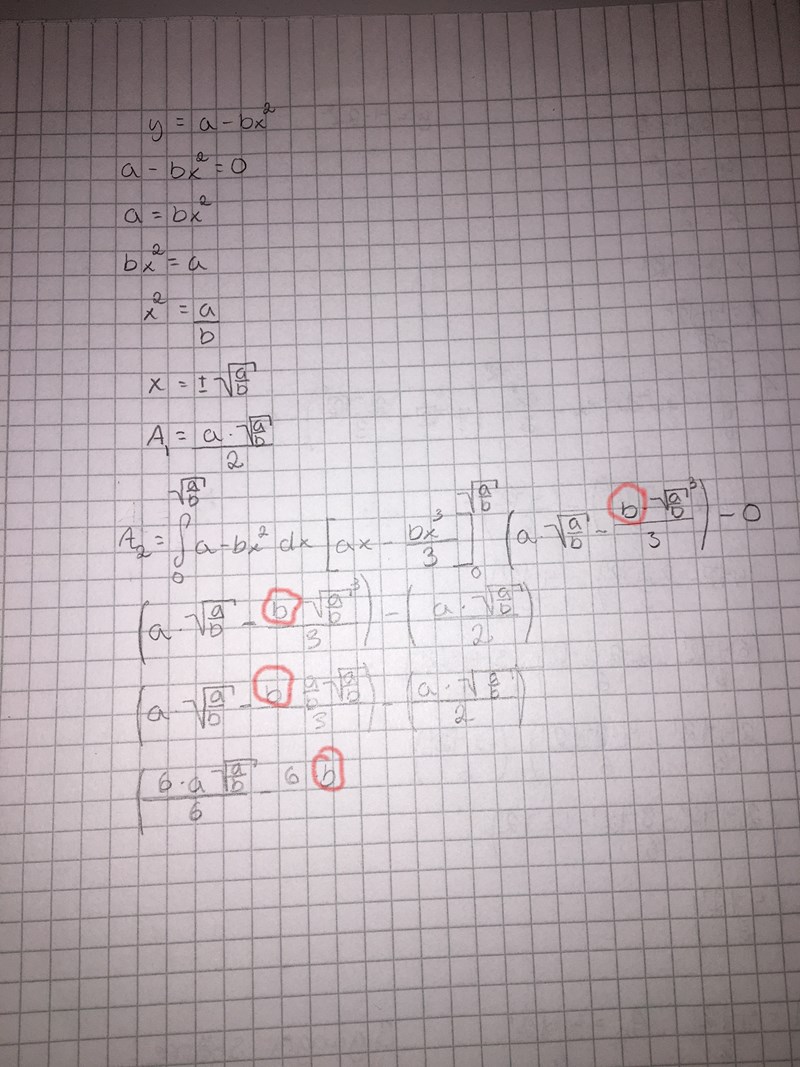 y = a - bx²
a - bx² = 0
a = bx²
bx² = a
x² = a/b
x = ± √(a/b)
A₁ = (a · √(a/b))/2
A₂ = ∫₀^√(a/b) a - bx² dx [ax - bx³/3]₀^√(a/b) (a · √(a/b) - (b · √(a/b)³)/3) - 0
(a · √(a/b) - (b · √(a/b)³)/3) - ((a · √(a/b))/2)
(a · √(a/b) - (b · a/b √(a/b))/3) - ((a · √(a/b))/2)
((6 · a √(a/b))/6 - 6 b